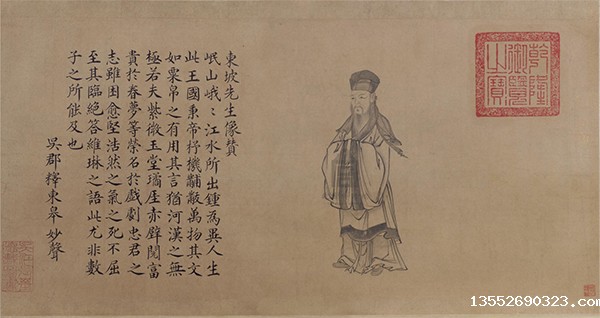 乾隆
御覽
之寶
東坡先生像贊
岷山峨〻江水所出鍾為異人生
此王國秉帝杼機黼黻萬物其文
如粟帛之有用其言猶河漢之無
極若夫紫微玉堂璚厓赤壁閱富
貴於春夢等榮名於戲劇忠君之
志雖困愈堅浩然之氣之死不屈
至其臨絕答維琳之語此尤非數
子之所能及也
吳郡釋東皋妙聲
13552690323.com